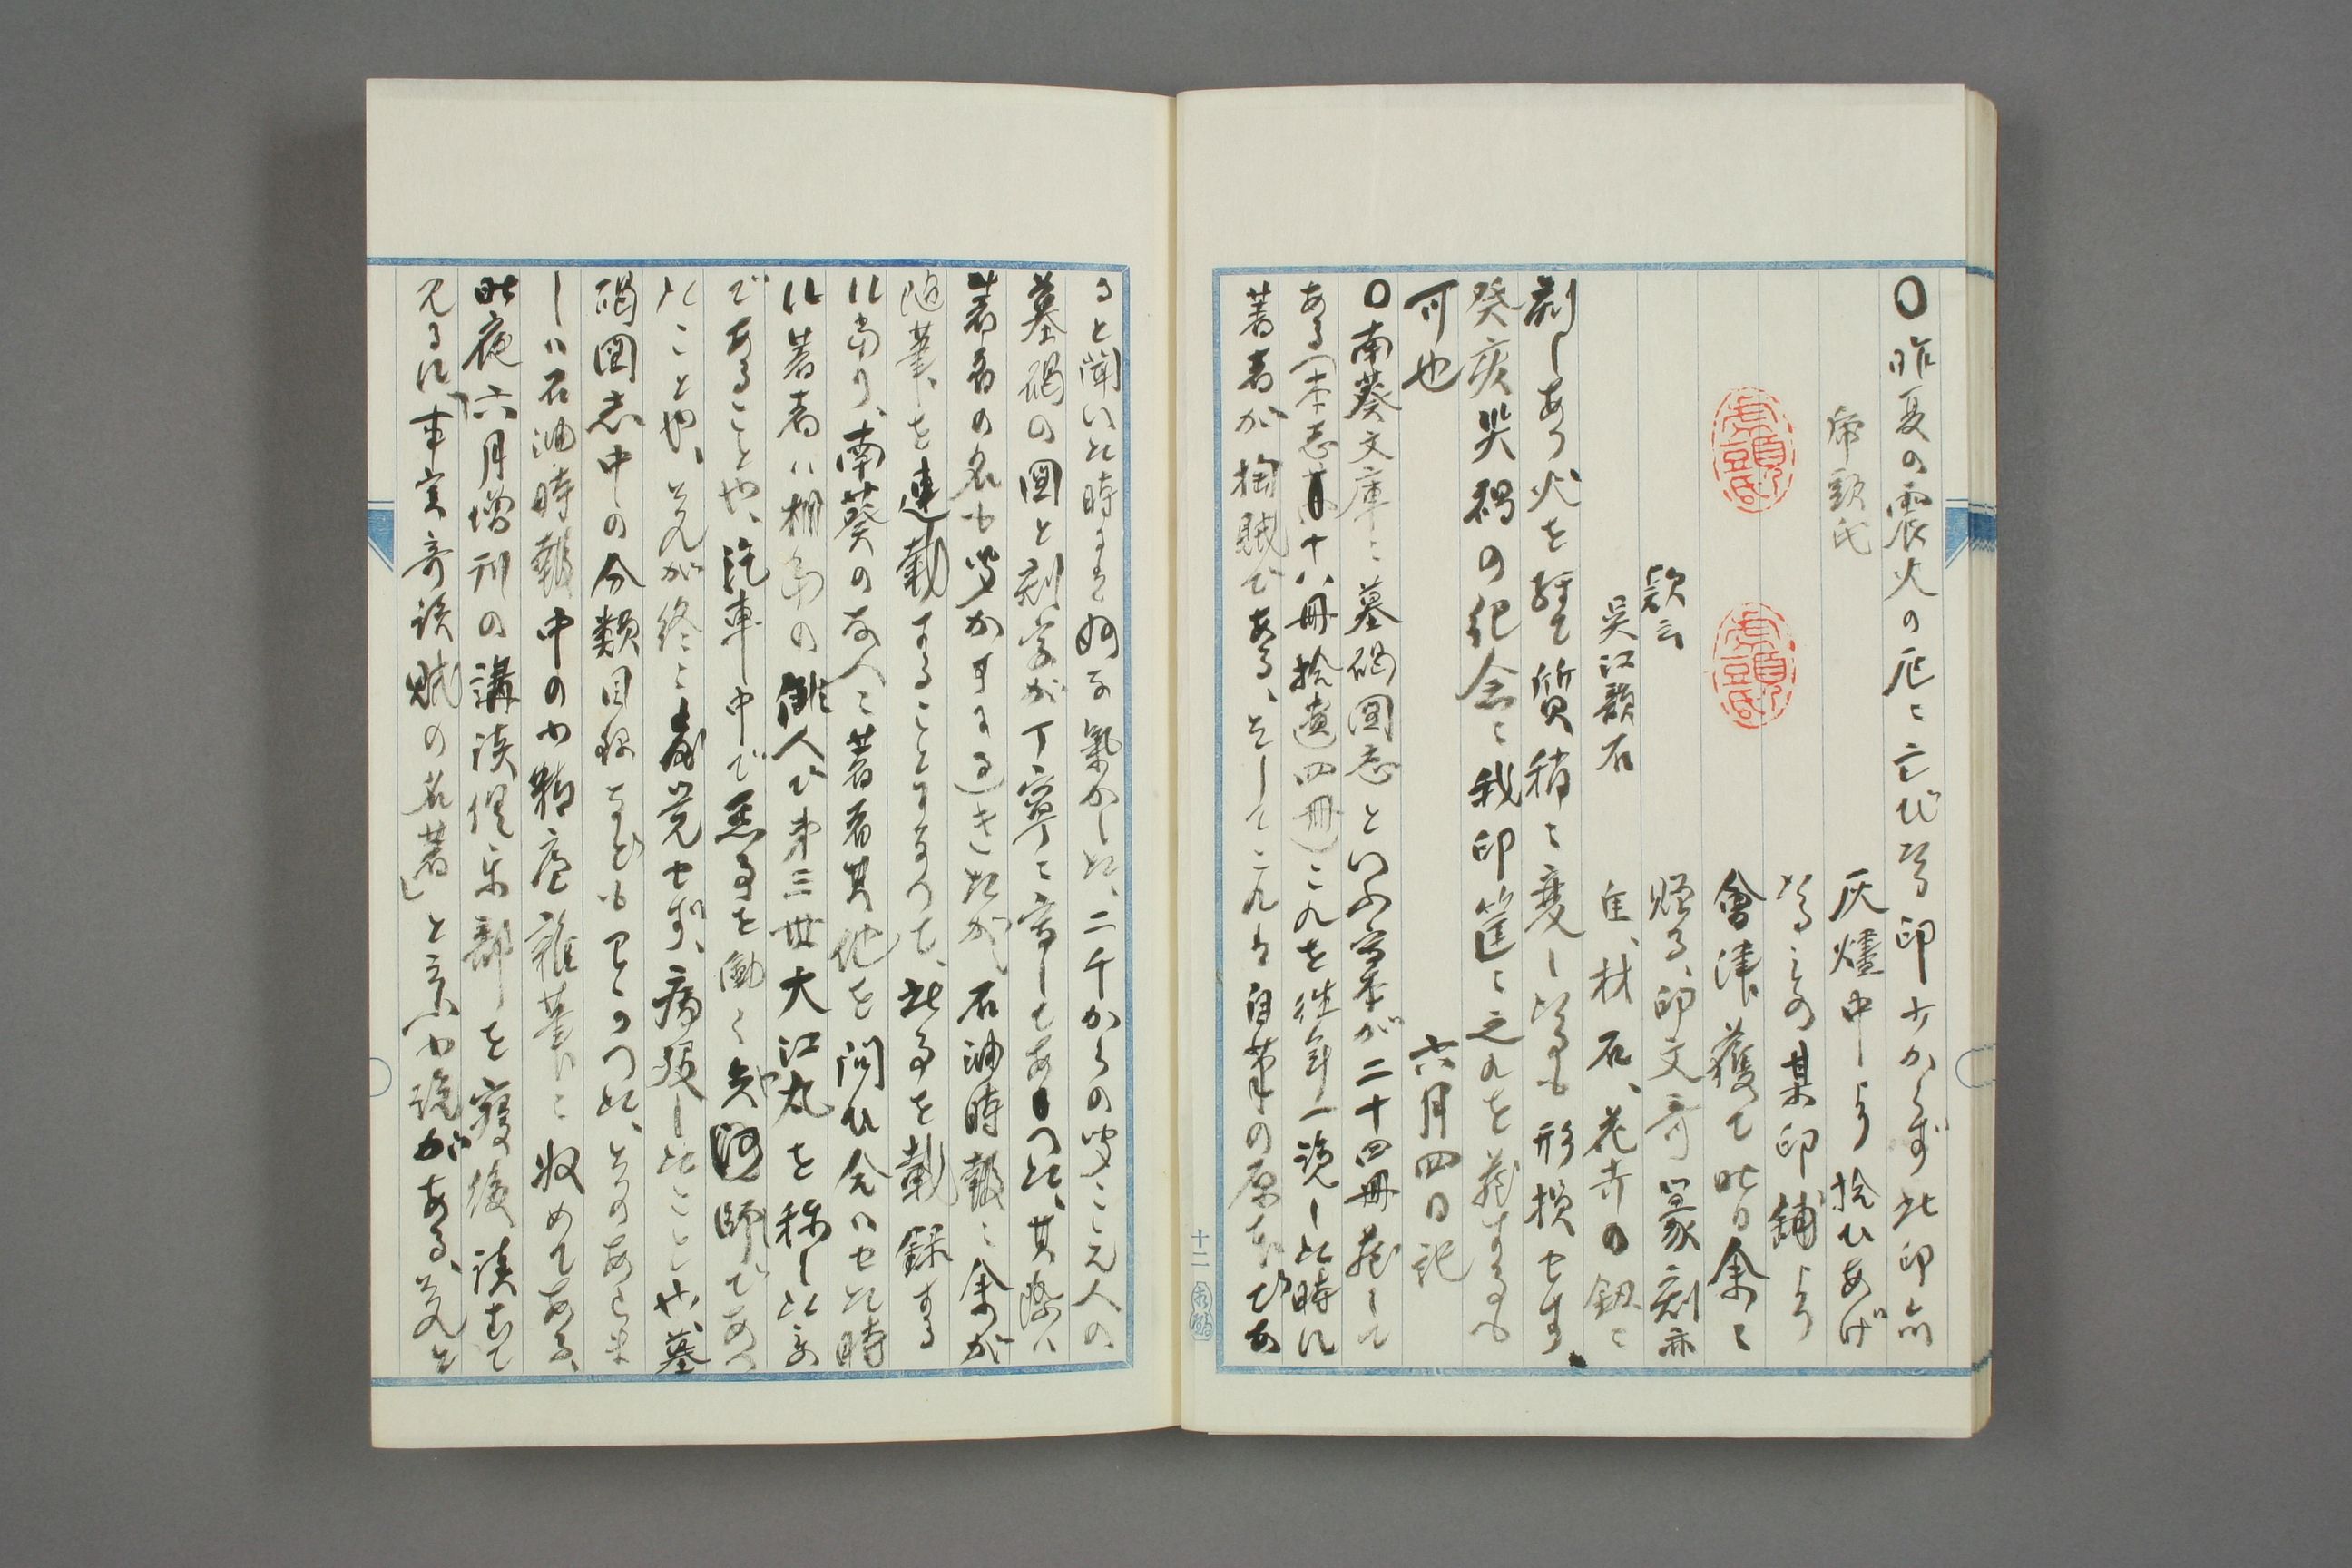 〇昨夏の震火の厄に亡びる印少からず此印亦
帝顗氏
灰燼中より拾ひあげ
たるもの某印舗より
會津獲て昨日余に
贈る、印文奇篆刻亦
款云
呉江韻石
佳、材石、花卉の鈕を
刻しあり火を経て質稍に変したるも形損せす、
癸亥災禍の紀念に我印筐に之れを蔵するも
可也
六月四日記
〇南葵文庫に墓碣図志といふ写本が二十四冊蔵して
ある(本志十八冊拾遺四冊)これを往年一覧した時に
著者が掏賊である、そしてこれは自筆の原本であ
ると聞いた時は妙な気がした、二千からの聞こえ人の
墓碣の図と刻字が丁寧に写してあつた、其際は
著者の名も聞かすに過きたが、石油時報に余が
随筆を連載することになつて、此事を載録する
に当り、南葵の友人に著者其他を問ひ合はせた時
に著者は榊原の俳人で第三世大江丸を称した男
であることや、汽車中で悪事を働く師であつ
たことや、それが終に発覚せず、病歿したことや、墓
碣図志中の分類目録なども
しは石油時報中の小精廬雑筆に収めてある、
昨夜六月増刊の講談倶楽部を寝後読むで
見るに「事実奇談賊の名著」と云ふ小説がある、それを
十二